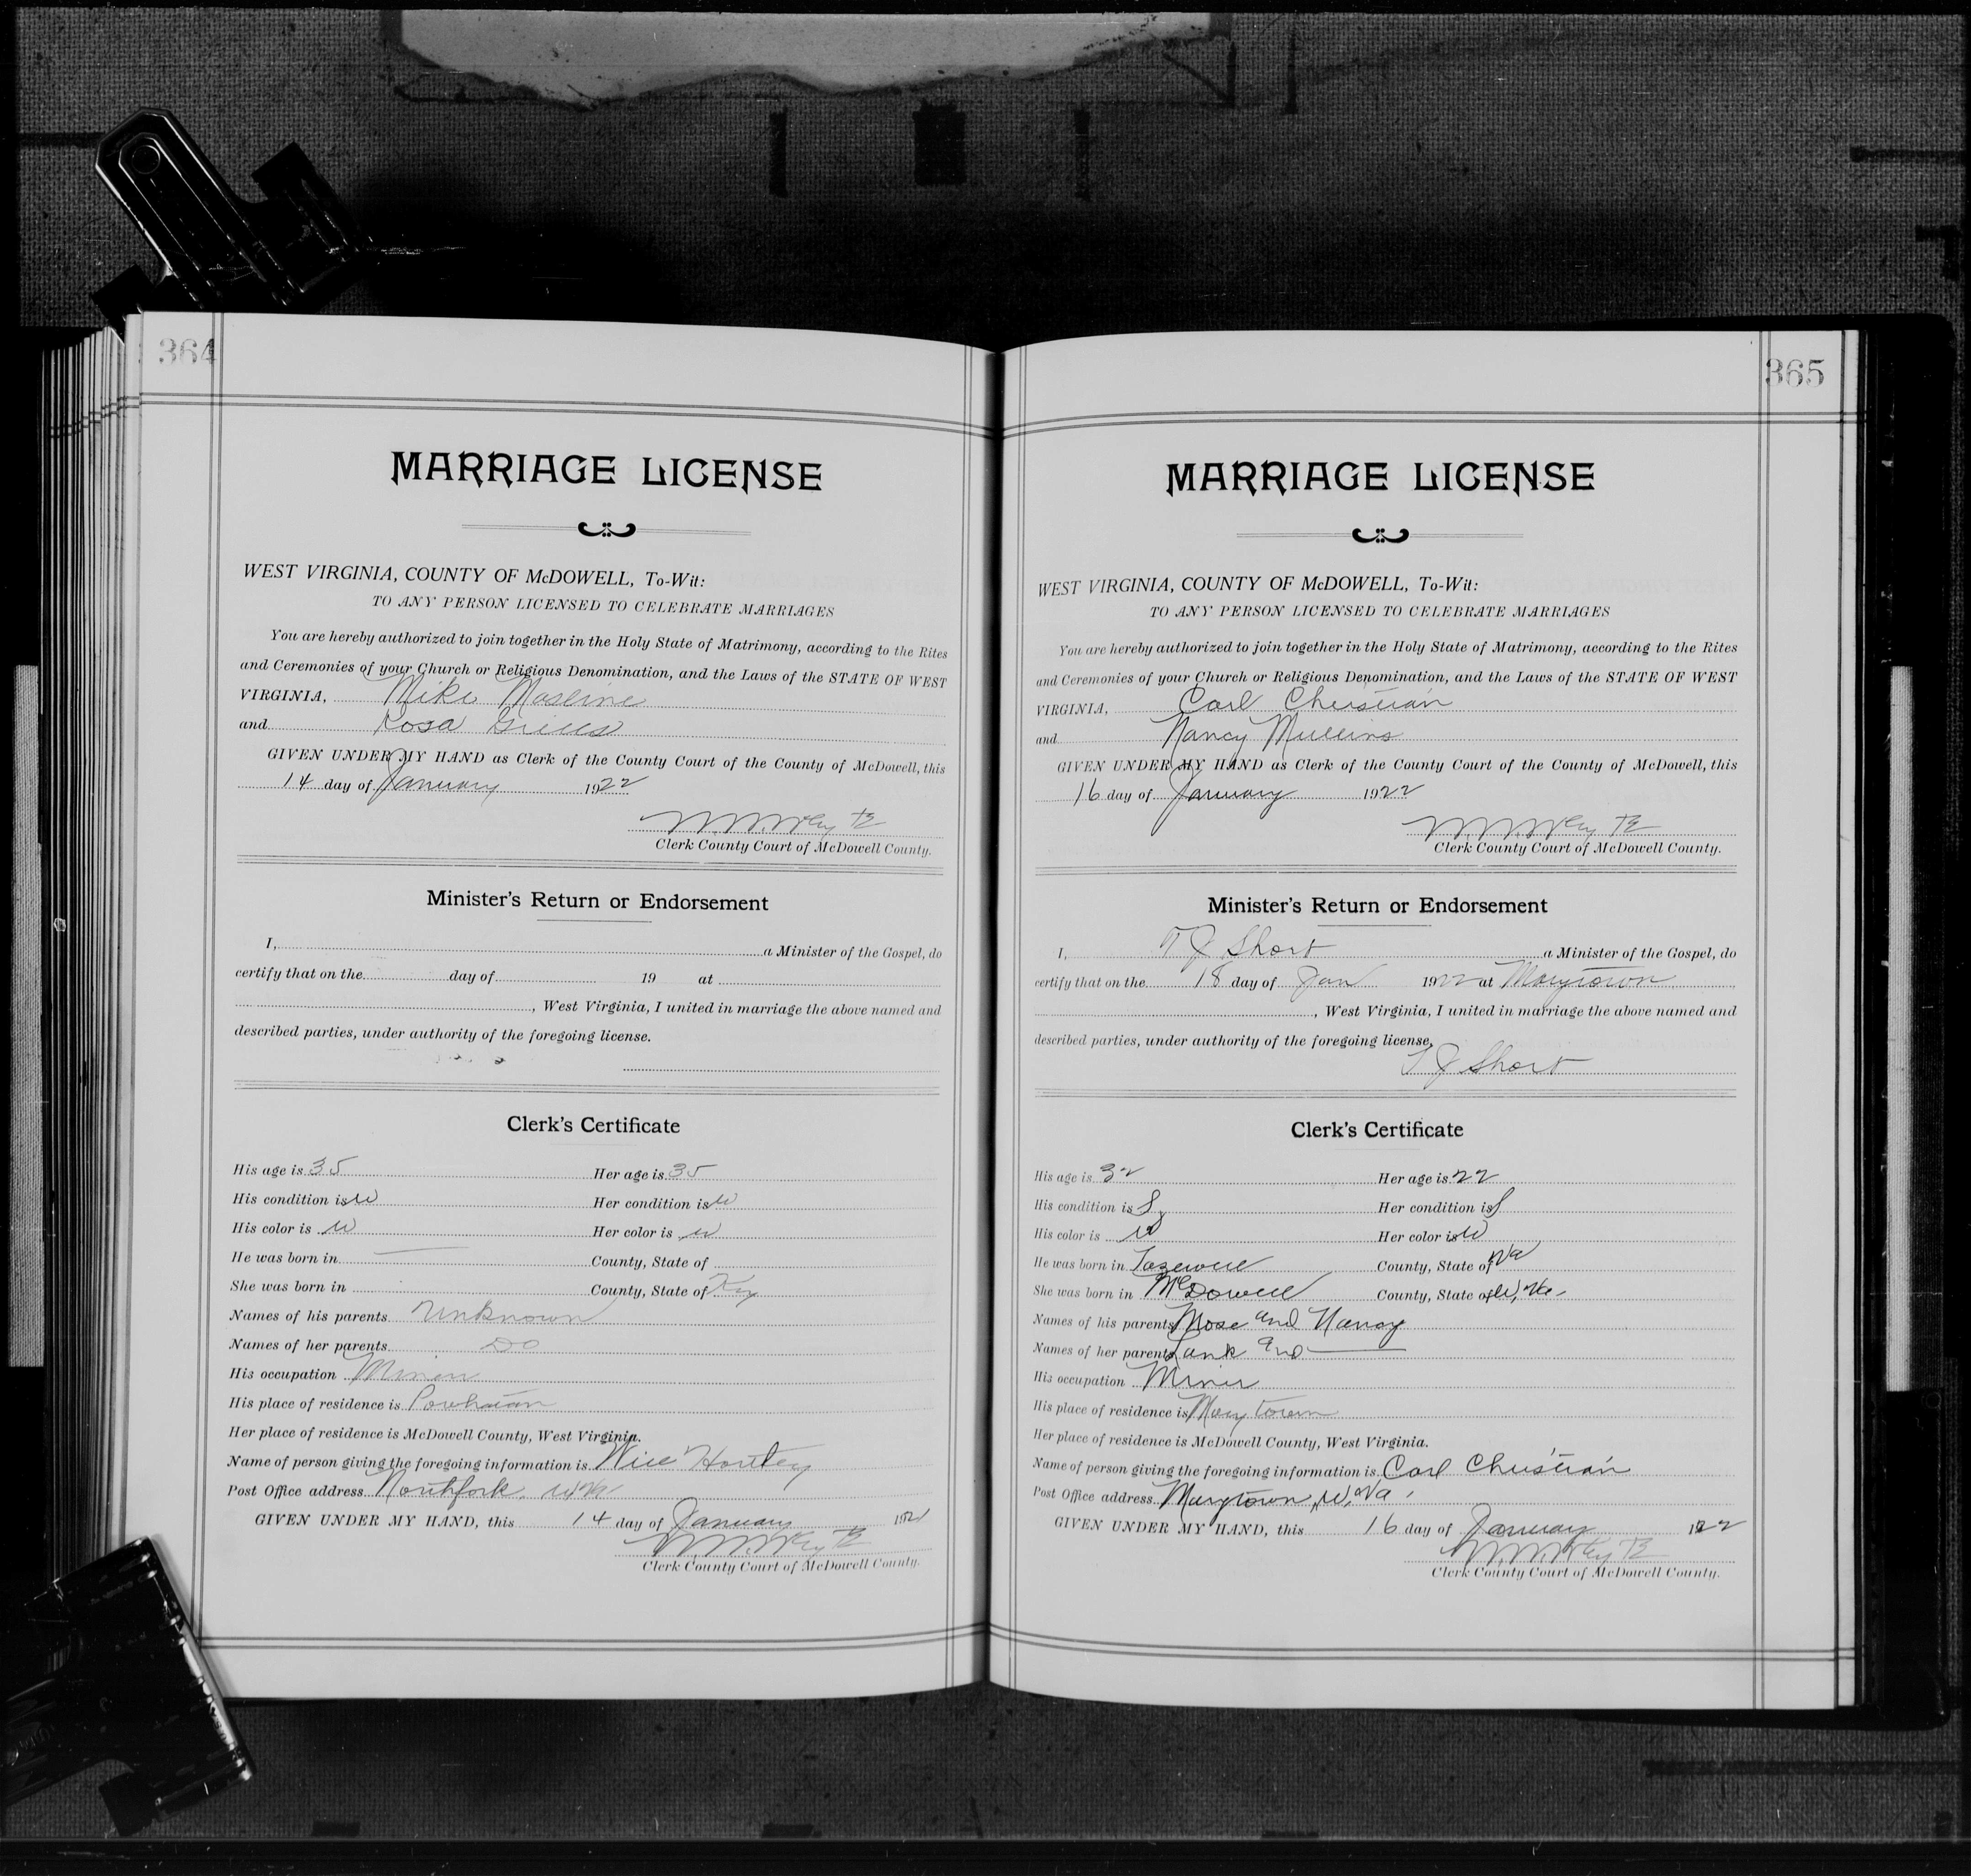 364
MARRIAGE LICENSE
WEST VIRGINIA, COUNTY OF McDOWELL, To-Wit:
TO ANY PERSON LICENSED TO CELEBRATE MARRIAGES
You are hereby authorized to join together in the Holy State of Matrimony, according to the Rites
and Ceremonies of your Church or Religious Denomination, and the Laws of the STATE OF WEST
VIRGINIA, Mike
and Rosa
GIVEN UNDER MY HAND as Clerk of the County Court of the County of McDowell, this
14 day of January 1922
Clerk County Court of McDowell County.
Minister's Return or Endorsement
I, a Minister of the Gospel, do
certify that on the day of 19 at
, West Virginia, I united in marriage the above named and
described parties, under authority of the foregoing license.
Clerk's Certificate
His age is 35 Her age is 35
His condition is W Her condition is W
His color is W Her color is W
He was born in County, State of
She was born in County, State of Ky
Names of his parents Unknown
Names of her parents Do
His occupation Miner
His place of residence is Powhatan
Her place of residence is McDowell County, West Virginia.
Name of person giving the foregoing information is Will
Post Office address Northfork, W Va
GIVEN UNDER MY HAND, this 14 day of January 192
Clerk County Court of McDowell County.
365
MARRIAGE LICENSE
WEST VIRGINIA, COUNTY OF McDOWELL, To-Wit:
TO ANY PERSON LICENSED TO CELEBRATE MARRIAGES
You are hereby authorized to join together in the Holy State of Matrimony, according to the Rites
and Ceremonies of your Church or Religious Denomination, and the Laws of the STATE OF WEST
VIRGINIA, Carl Christian
and Nancy Mullins
GIVEN UNDER MY HAND as Clerk of the County Court of the County of McDowell, this
16 day of January 1922
Clerk County Court of McDowell County.
Minister's Return or Endorsement
I, T J Short a Minister of the Gospel, do
certify that on the 18 day of Jan 1922 at Marytown
, West Virginia, I united in marriage the above named and
described parties, under authority of the foregoing license.
T J Short
Clerk's Certificate
His age is 32 Her age is 22
His condition is S Her condition is S
His color is W Her color is W
He was born in Tazewell County, State of Va
She was born in McDowell County, State of W, Va.
Names of his parents Mose and Nancy
Names of her parents Lank and
His occupation Miner
His place of residence is Marytown
Her place of residence is McDowell County, West Virginia.
Name of person giving the foregoing information is Carl Christian
Post Office address Marytown, W, Va,
GIVEN UNDER MY HAND, this 16 day of January 1922
Clerk County Court of McDowell County.